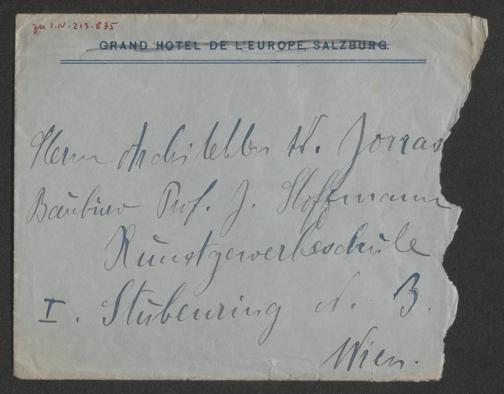 zu I.N. 213.835
GRAND HOTEL DE L'EUROPE, SALZBURG.
Herrn Architekten K. Jonas
Baubüro Prof. J. Hoffmann
Kunstgewerbeschule
I. Stubenring N. 3.
Wien.